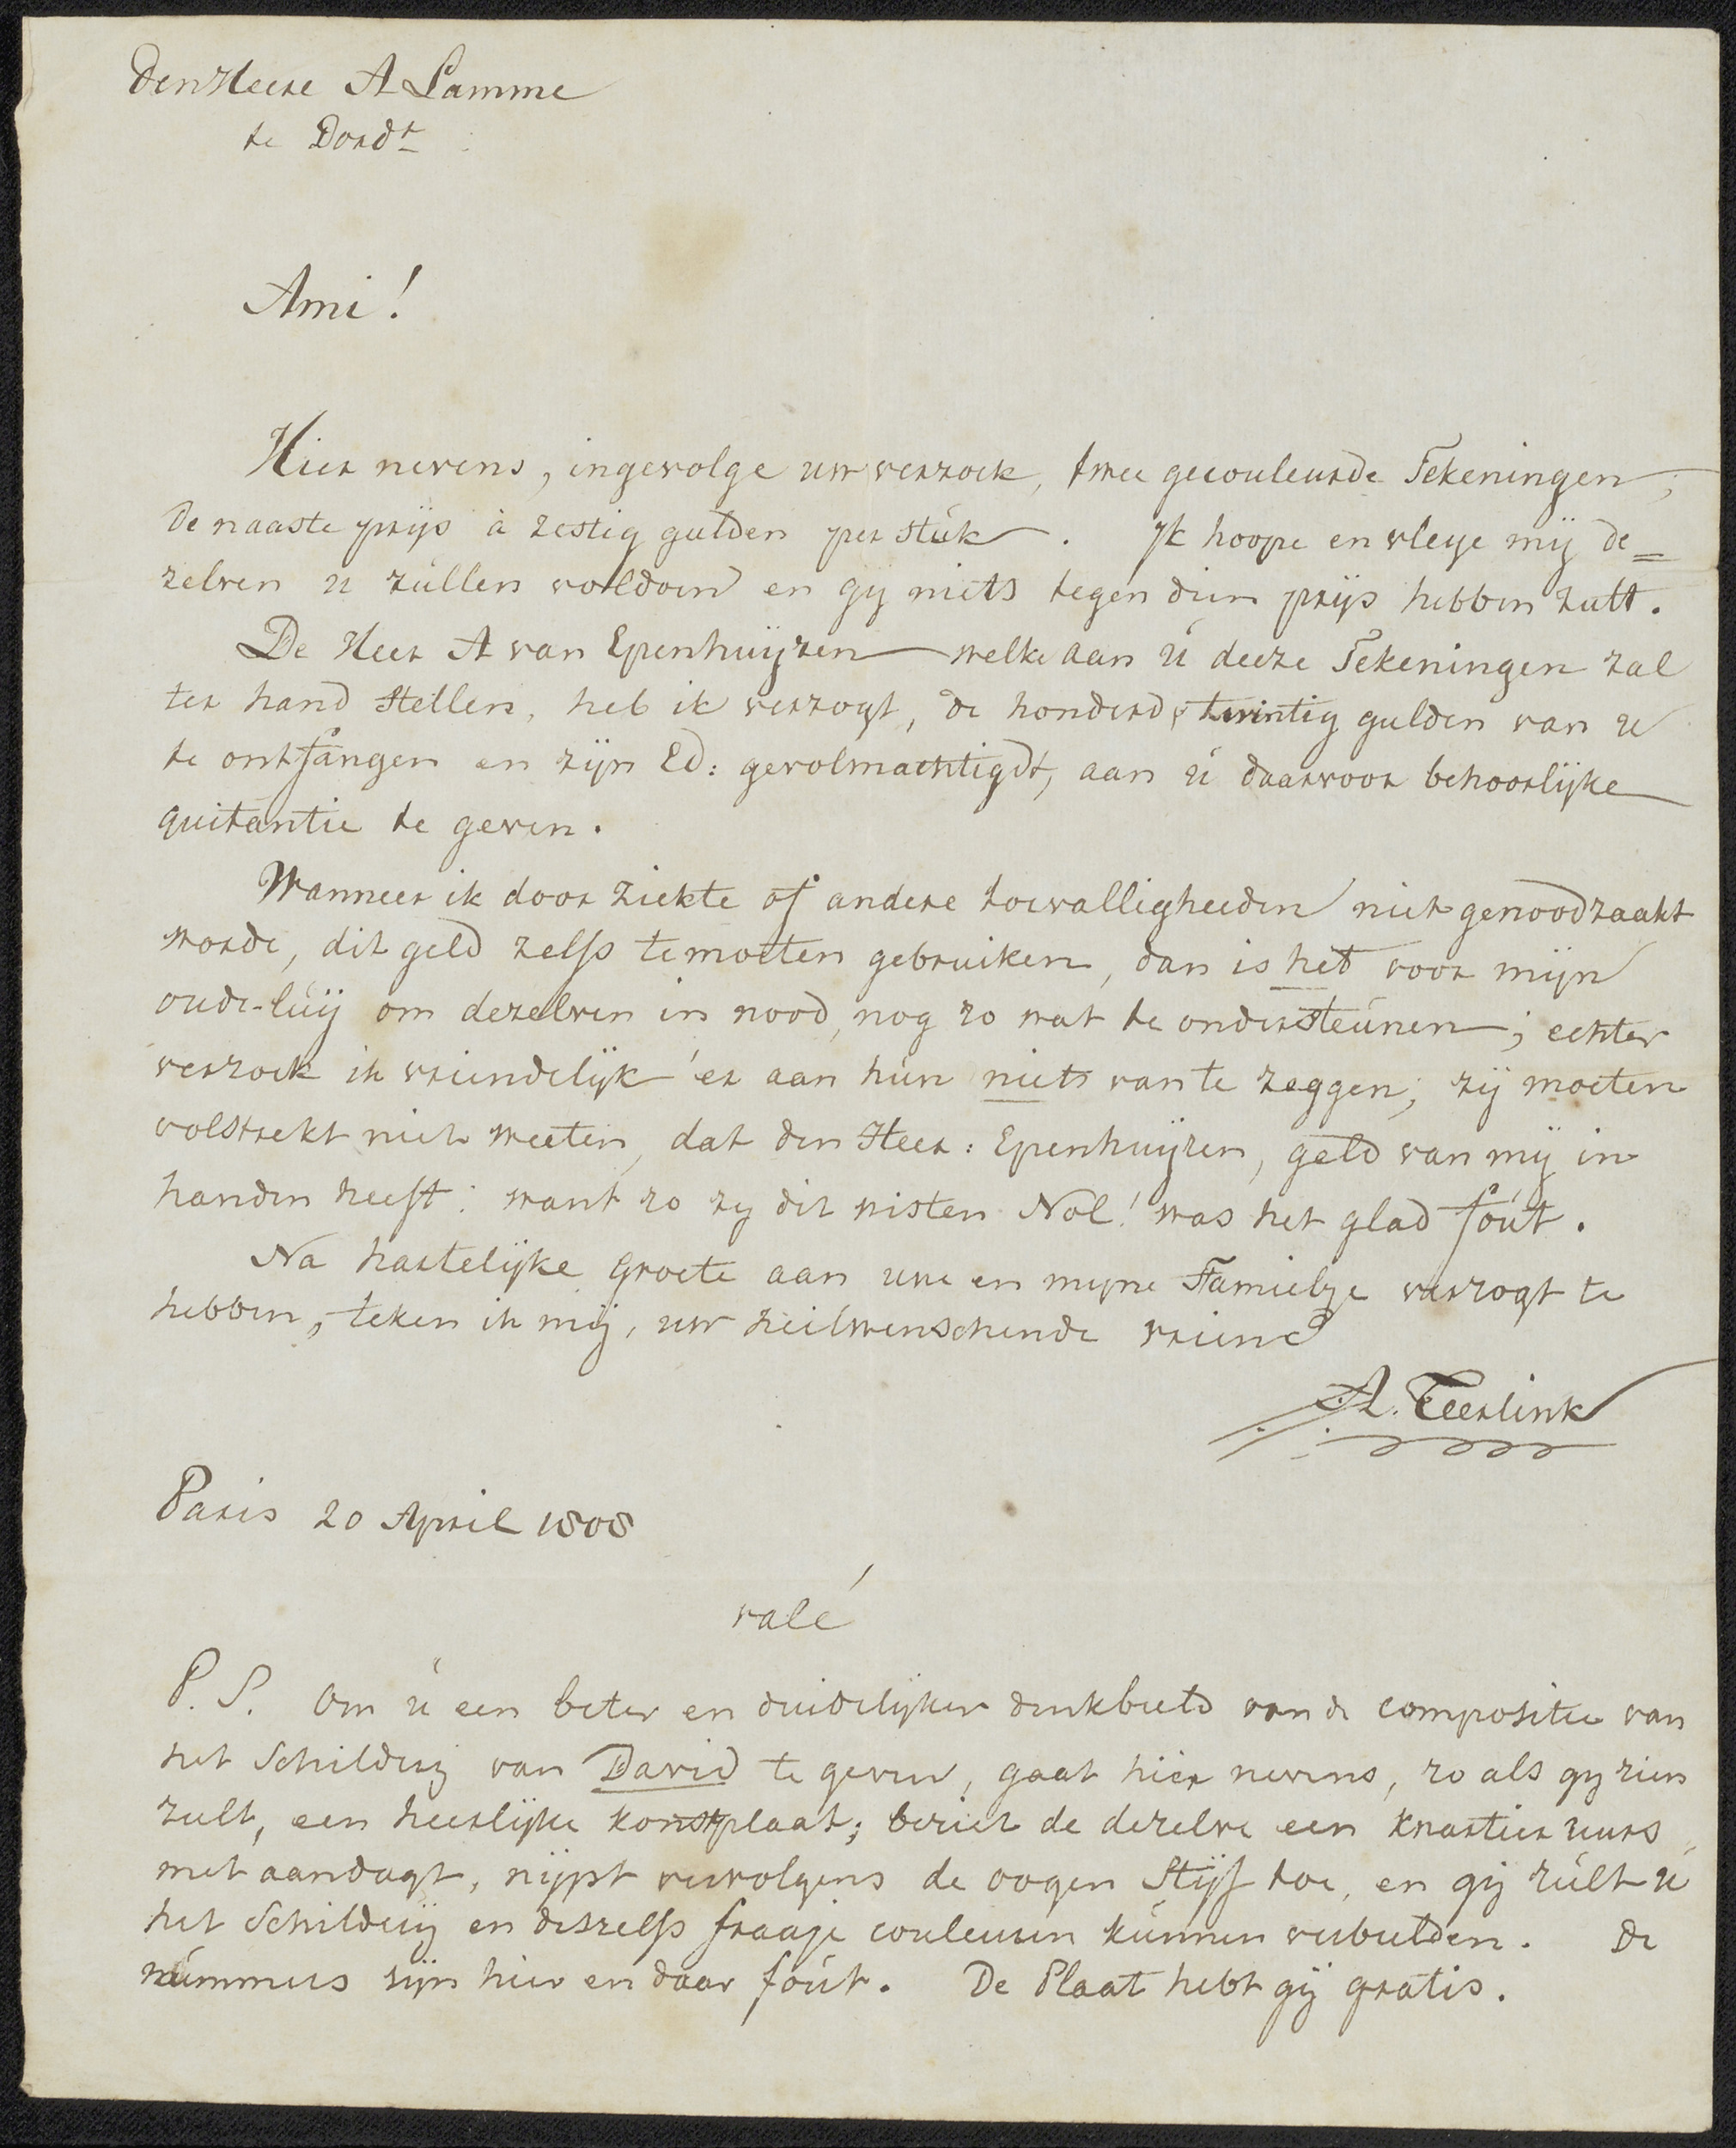 Den Heere A Lamme
te Dordt
Ami!
Hier nevens, ingevolge uw verzoek, twee gecouleurde Tekeningen,
de naaste prijs à zestig gulden per stúk. Ik hoope en vleye mij de=
zelven u zúllen voldoen en gy niets tegen dien prijs hebben zult.
De Heer A van Epenhuijzen welke aan ú deeze Tekeningen zal
ter hand stellen, heb ik verzogt, de honderd twintig gulden van u
te ontfangen en zijn Ed: gevolmachtigdt, aan ú daarvoor behoorlijke
quitantie te geven.
Wanneer ik door ziekte of andere toevalligheeden niet genoodzaakt
worde, dit geld zelfs te moeten gebruiken, dan is het voor mijn
oude-lúij om dezelven in nood, nog zo wat te ondersteúnen; echter
verzoek ik vriendelijk er aan hún niets van te zeggen; zij moeten
volstrekt niet weeten, dat den Heer: Epenhuijzen, geld van mij in
handen heeft: want zo zy dit wisten Nol! was het glad foút.
Na hartelijke groete aan uwe en myne Famielye verzogt te
hebben, teken ik mij, uw heilwenschende vriend
A. Teerlink
Paris 20 April 1808
valé
P.S. Om ú een beter en duidelijker denkbeeld van de compositie van
het Schilderij van David te geven, gaat hier nevens, zo als gy zien
zult, een heerlijke konstplaat; beziet de dezelve een kwartier uurs
met aandagt, nijpt vervolgens de oogen stijf toe, en gij zúlt ú
het Schilderij en deszelfs fraaje couleuren kúnnen verbeelden. De
númmers zijn hier en daar foút. De Plaat hebt gij gratis.